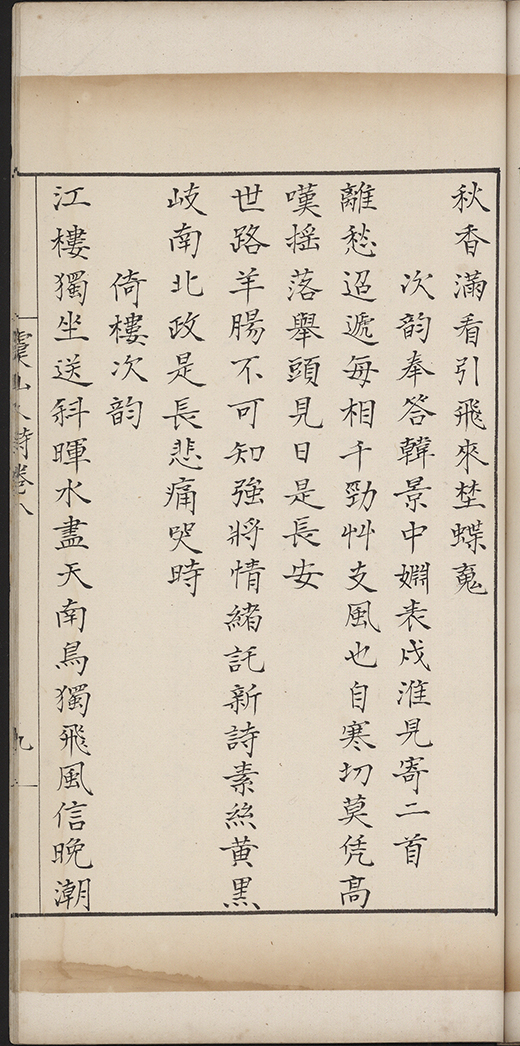 秋香滿看引飛來埜蝶䰟
次韵奉答韓景中婣表戍淮見寄二首
離愁迢遞每相干勁艸支風也自寒切莫凭高
嘆搖落舉頭見日是長安
世路羊腸不可知強將情緒託新詩素絲黃黒
岐南北政是長悲痛哭時
倚樓次韵
江樓獨坐送斜暉水盡天南鳥獨飛風信晚潮
山人詩卷八
九